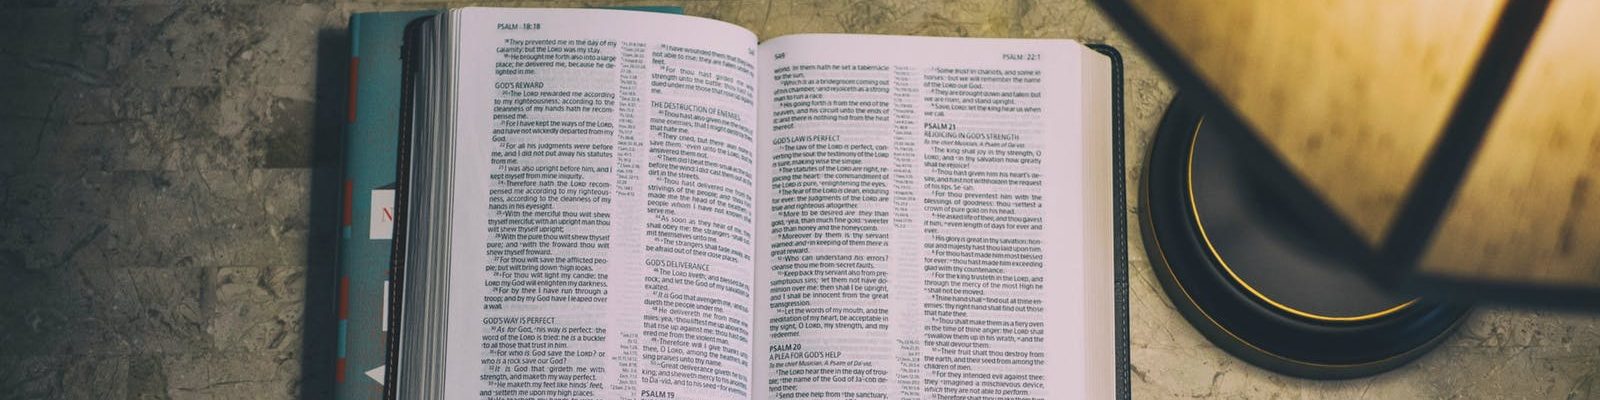 PSALM 18:18
18They prevented me in the day of my
calamity: but the LORD was my stay.
19He brought me forth also into a large
place; he delivered me, because he de-
lighted in me.
GOD'S REWARD
20The LORD rewarded me according
to my righteousness; according to the
cleanness of my hands hath he recom-
pensed me.
21For I have kept the ways of the LORD,
and have not wickedly departed from my
God.
22For all his judgments were before
me, and I did not put away his statutes
from me.
23I was also upright before him, and I
kept myself from mine iniquity.
24Therefore hath the LORD recom-
pensed me according to my righteous-
ness, according to the cleanness of my
hands in his eyesight.
25With the merciful thou wilt shew
thyself merciful; with an upright man thou
wilt shew thyself upright;
26With the pure thou wilt shew thyself
pure; and with the froward thou wilt
shew thyself froward.
27For thou wilt save the afflicted peo-
ple; but wilt bring down high looks.
28For thou wilt light my candle: the
LORD my God will enlighten my darkness.
29For by thee I have run through a
troop; and by my God have I leaped over
a wall.
GOD'S WAY IS PERFECT
30As for God, his way is perfect: the
word of the LORD is tried: he is a buckler
to all those that trust in him.
31For who is God save the LORD? or
who is a rock save our God?
32It is God that girdeth me with
strength, and maketh my way perfect.
33He maketh my feet like hinds' feet,
and setteth me upon my high places.
38I have wounded them that they were
not able to rise: they are fallen under my
feet.
39For thou hast girded me with
strength unto the battle: thou hast
dued under me those that rose up against
me.
THE DESTRUCTION OF ENEMIES
40Thou hast also given me the necks of
mine enemies; that I might destroy them
that hate me.
41They cried, but there was none to
save them: even unto the LORD, but he
answered them not.
42Then did I beat them small as the dust
before the wind: I did cast them out as the
dirt in the streets.
43Thou hast delivered me from the
strivings of the people; and thou hast
made me the head of the heathen: a
people whom I have not known shall
serve me.
44As soon as they hear of me, they
shall obey me: the strangers shall sub-
mit themselves unto me.
45The strangers shall fade away, and
be afraid out of their close places.
GOD'S DELIVERANCE
46The LORD liveth; and blessed be my
rock; and let the God of my salvation be
exalted.
47It is God that avengeth me, and sub-
dueth the people under me.
48He delivereth me from mine ene-
mies: yea, thou liftest me up above those
that rise up against me: thou hast deliv-
ered me from the violent man.
49Therefore will I give thanks unto
thee, O LORD, among the heathen, and
sing praises unto thy name.
50Great deliverance giveth he to his
king; and sheweth mercy to his anointed,
to Da-vid, and to his seed for evermore.
PSALM 19
549
world. In them hath he set a tabernacle
for the sun,
5Which is as a bridegroom coming out
of his chamber, and rejoiceth as a strong
man to run a race.
6His going forth is from the end of the
heaven, and his circuit unto the ends of
it: and there is nothing hid from the heat
thereof.
GOD'S LAW IS PERFECT
7The law of the LORD is perfect, con-
verting the soul: the testimony of the LORD
is sure, making wise the simple.
8The statutes of the LORD are right, re-
joicing the heart: the commandment of
the LORD is pure, enlightening the eyes.
9The fear of the LORD is clean, enduring
for ever: the judgments of the LORD are
true and righteous altogether.
10More to be desired are they than
gold, yea, than much fine gold: sweeter
also than honey and the honeycomb.
11Moreover by them is thy servant
warned: and in keeping of them there is
great reward.
12Who can understand his errors?
cleanse thou me from secret faults.
13Keep back thy servant also from pre-
sumptuous sins; let them not have do-
minion over me: then shall I be upright,
and I shall be innocent from the great
transgression.
14Let the words of my mouth, and the
meditation of my heart, be acceptable in
thy sight, O LORD, my strength, and my
redeemer.
PSALM 20
A PLEA FOR GOD'S HELP
To the chief Musician, A Psalm of Da-vid.
1The LORD hear thee in the day of trou-
ble; the name of the God of Ja-cob de-
fend thee;
2Send thee help from the sanctuary,
PSALM 22:1
7Some trust in chariots, and some in
horses: but we will remember the name
of the LORD our God.
8They are brought down and fallen: but
we are risen, and stand upright.
9Save, LORD: let the king hear us when
we call.
PSALM 21
REJOICING IN GOD'S STRENGTH
To the chief Musician, A Psalm of Da-vid.
1The king shall joy in thy strength, O
LORD; and in thy salvation how greatly
shall he rejoice!
2Thou hast given him his heart's de-
sire, and hast not withholden the request
of his lips. Se-lah.
3For thou preventest him with the
blessings of goodness: thou settest a
crown of pure gold on his head.
4He asked life of thee, and thou gavest
it him, even length of days for ever and
ever.
5His glory is great in thy salvation: hon-
our and majesty hast thou laid upon him.
6For thou hast made him most blessed
for ever: thou hast made him exceeding
glad with thy countenance.
7For the king trusteth in the LORD, and
through the mercy of the most High he
shall not be moved.
8Thine hand shall find out all thine en-
emies: thy right hand shall find out those
that hate thee.
9Thou shalt make them as a fiery oven
in the time of thine anger: the LORD shall
swallow them up in his wrath, and the
fire shall devour them.
10Their fruit shalt thou destroy from
the earth, and their seed from among the
children of men.
11For they intended evil against thee:
they imagined a mischievous device,
which they are not able to perform.
12Therefore shalt thou make them
N